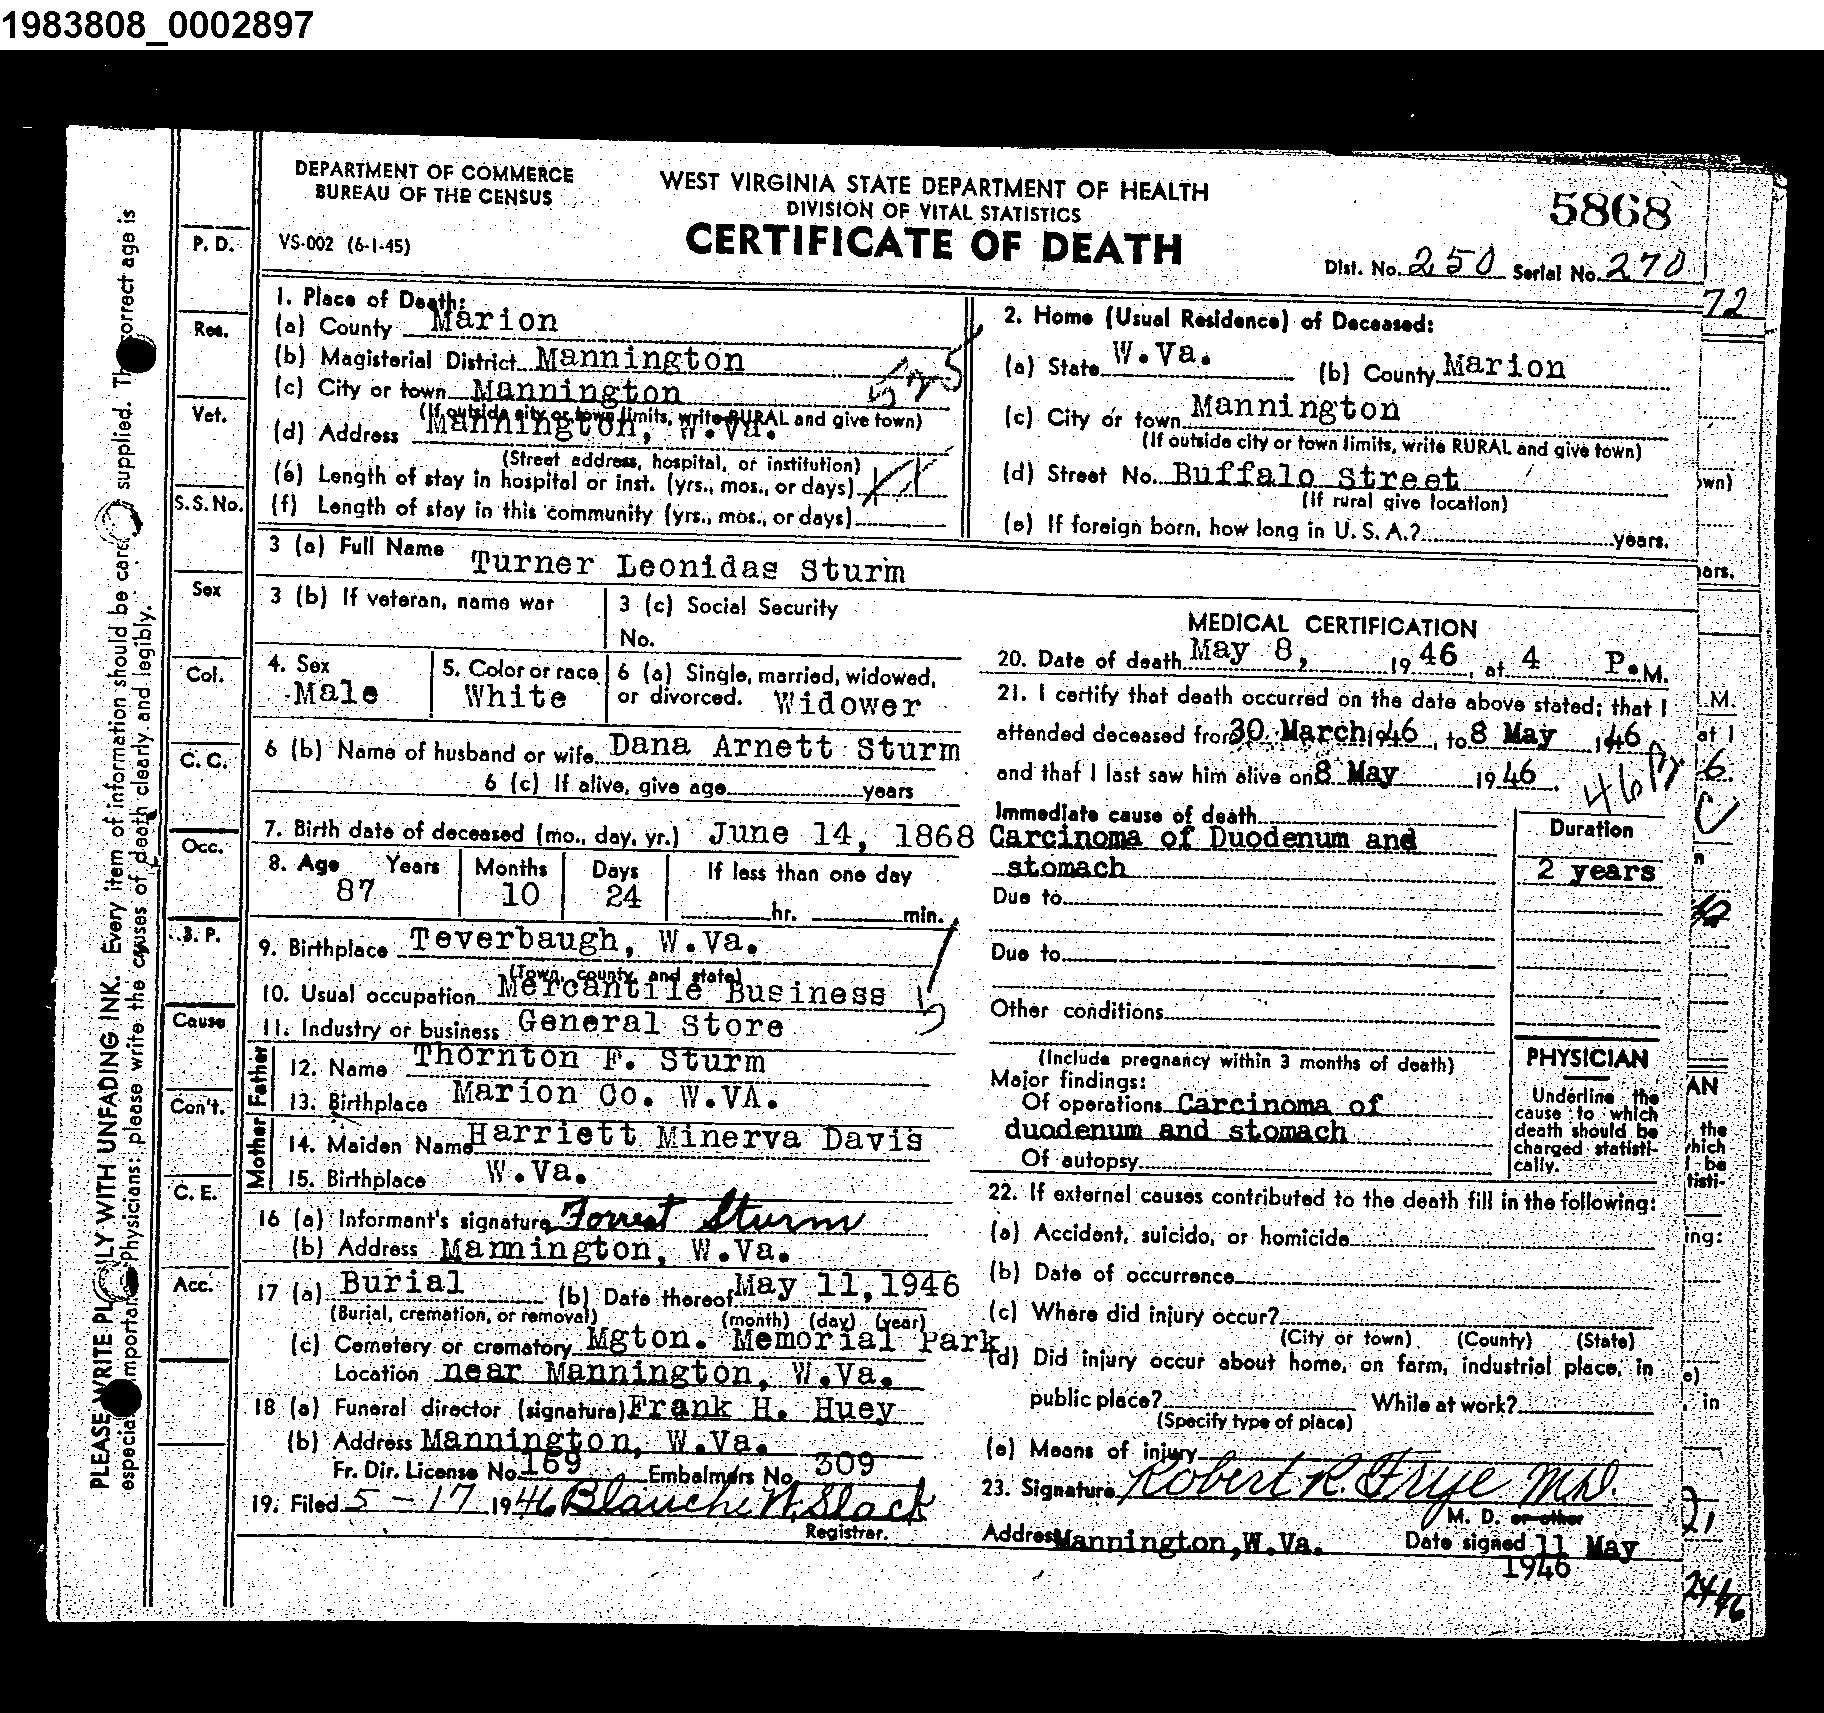 1983808_0002897
DEPARTMENT OF COMMERCE
BUREAU OF THE CENSUS
VS-002 (6-1-45)
WEST VIRGINIA STATE DEPARTMENT OF HEALTH
DIVISION OF VITAL STATISTICS
CERTIFICATE OF DEATH
5868
Dist. No. 250 Serial No. 270
72
1. Place of Death:
(a) County Marion
(b) Magisterial District Mannington
(c) City or town Mannington
(If outside city or town limits, write RURAL and give town)
(d) Address Mannington, W.Va.
(Street address, hospital, or institution)
(e) Length of stay in hospital or inst. (yrs., mos., or days)
(f) Length of stay in this community (yrs., mos., or days)
2. Home (Usual Residence) of Deceased:
(a) State W.Va. (b) County Marion
(c) City or town Mannington
(If outside city or town limits, write RURAL and give town)
(d) Street No. Buffalo Street
(If rural give location)
(e) If foreign born, how long in U. S. A.? years.
3 (a) Full Name Turner Leonidas Sturm
3 (b) If veteran, name war
3 (c) Social Security
No.
4. Sex
Male
5. Color or race
White
6 (a) Single, married, widowed,
or divorced. Widower
6 (b) Name of husband or wife Dana Arnett Sturm
6 (c) If alive, give age years
7. Birth date of deceased (mo., day, yr.) June 14, 1868
8. Age Years Months Days If less than one day
87 10 24 hr. min.
9. Birthplace Teverbaugh, W.Va.
(Town, county, and state)
10. Usual occupation Mercantile Business
11. Industry or business General Store
Father
12. Name Thornton F. Sturm
13. Birthplace Marion Co. W.VA.
Mother
14. Maiden Name Harriett Minerva Davis
15. Birthplace W.Va.
16 (a) Informant's signature Forrest Sturm
(b) Address Mannington, W.Va.
17 (a) Burial (b) Date thereof May 11, 1946
(Burial, cremation, or removal) (month) (day) (year)
(c) Cemetery or crematory Mgton. Memorial Park
Location near Mannington, W.Va.
18 (a) Funeral director (signature) Frank H. Huey
(b) Address Mannington, W.Va.
Fr. Dir. License No. 169 Embalmers No. 309
19. Filed 5-17 1946 Blanche N. Slack
Registrar.
MEDICAL CERTIFICATION
20. Date of death May 8, 1946, at 4 P.M.
21. I certify that death occurred on the date above stated; that I
attended deceased from 30 March 1946, to 8 May 1946
and that I last saw him alive on 8 May 1946.
46B
Immediate cause of death
Carcinoma of Duodenum and
stomach
Duration
2 years
Due to
Due to
Other conditions
(Include pregnancy within 3 months of death)
Major findings:
Of operations Carcinoma of
duodenum and stomach
Of autopsy
PHYSICIAN
Underline the
cause to which
death should be
charged statisti-
cally.
22. If external causes contributed to the death fill in the following:
(a) Accident, suicido, or homicide
(b) Date of occurrence
(c) Where did injury occur?
(City or town) (County) (State)
(d) Did injury occur about home, on farm, industrial place, in
public place? While at work?
(Specify type of place)
(e) Means of injury
23. Signature Robert R. Frye M.D.
M. D. or other
Address Mannington, W.Va. Date signed 11 May
1946
P. D.
Res.
Vet.
S.S. No.
Sex
Col.
C. C.
Occ.
B. P.
Cause
Con't.
C. E.
Acc.